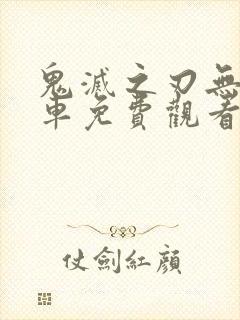 鬼滅之刃無
車免費觀看
仗劍紅顏